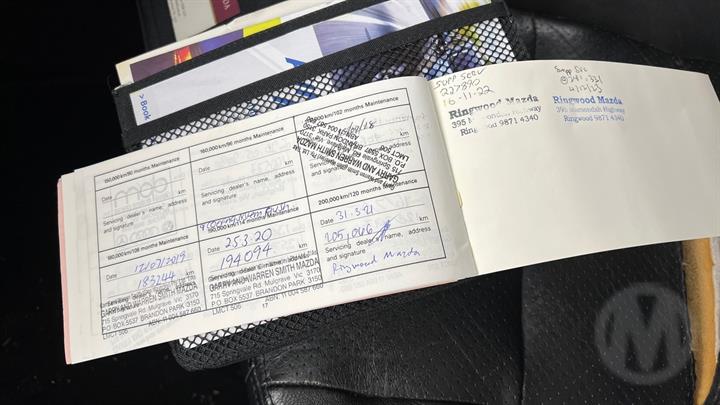 > Book
150,000km/90 months Maintenance
Date km
Servicing dealer's name, address
and signature
160,000km/96 months Maintenance
Date km
Servicing dealer's name, address
and signature
km/102 months Maintenance
/18
GARRY AND WARREN SMITH MAZDA
715 Springvale Rd. Mulgrave Vic 3170
BRANDON PARK 3150
LMCT 506
km/108 months Maintenance
Date 12/07/2019
183744 km
Servicing dealer's name, address
GARRY AND WARREN SMITH MAZDA
715 Springvale Rd. Mulgrave Vic 3170
P.O BOX 5537 BRANDON PARK 3150
LMCT 506 ABN: 11 004 587 660
km/114 months Maintenance
Date 25.3.20
194094 km
GARRY AND WARREN SMITH MAZDA
715 Springvale Rd. Mulgrave Vic 3170
P.O BOX 5537 BRANDON PARK 3150
LMCT 506 ABN: 11 004 587 660
17
200,000km/120 months Maintenance
Date 31.3.21
205,046 km
Servicing dealer's name, address
and signature
Ringwood Mazda
SUPP SERV
16-11-22
Ringwood Mazda
395 Highway
Ringwood 9871 4340
Supp Svc
Ringwood Mazda
395 Maroondah Highway
Ringwood 9871 4340
M